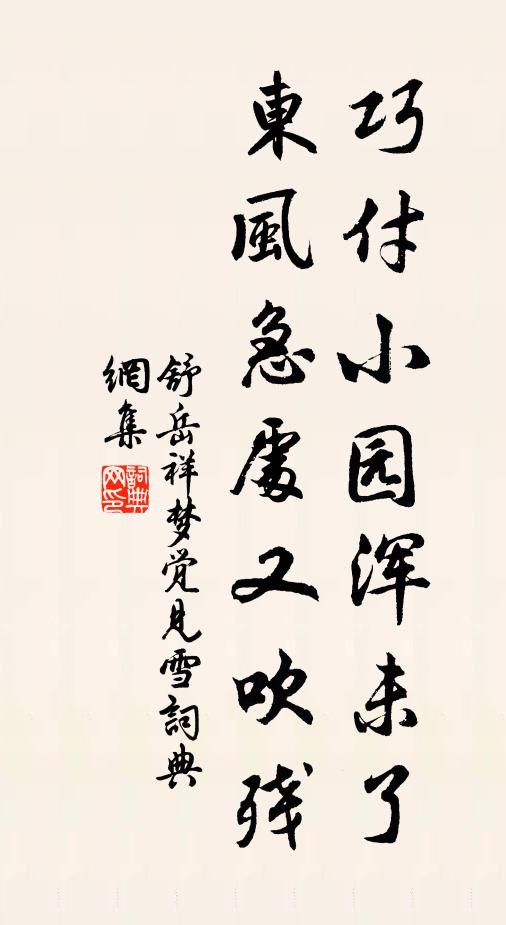 巧付小园浑未了
東風急處又吹残
舒岳祥梦觉见雪詞典
網集
詞典
网印